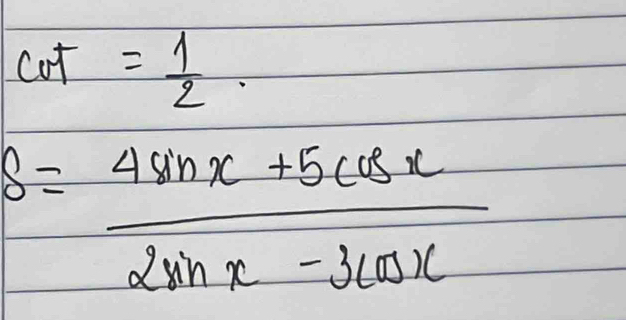 cot = 1/2 .
S = (4 sin x + 5 cos x) / (2 sin x - 3 cos x)